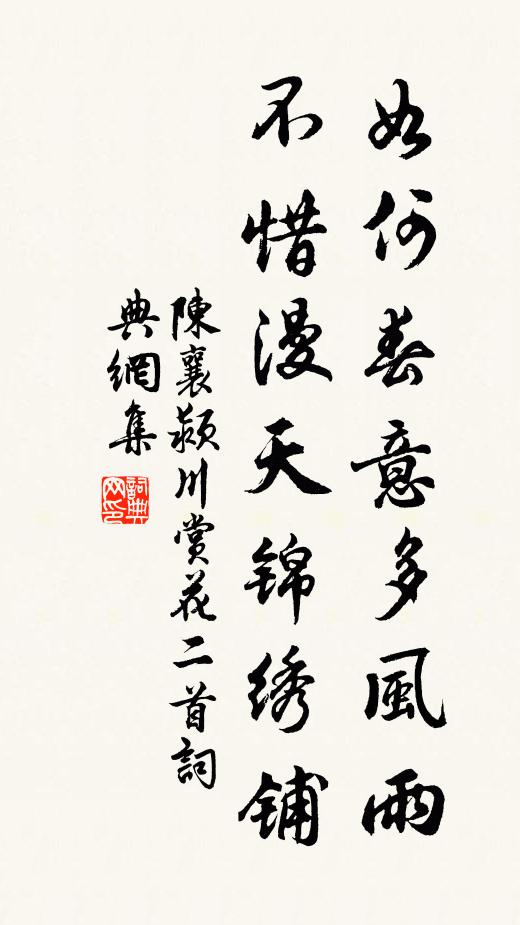 如何春意多風雨
不惜漫天錦绣铺
陳襄潁川賞花二首詞
典網集
詞典
网印